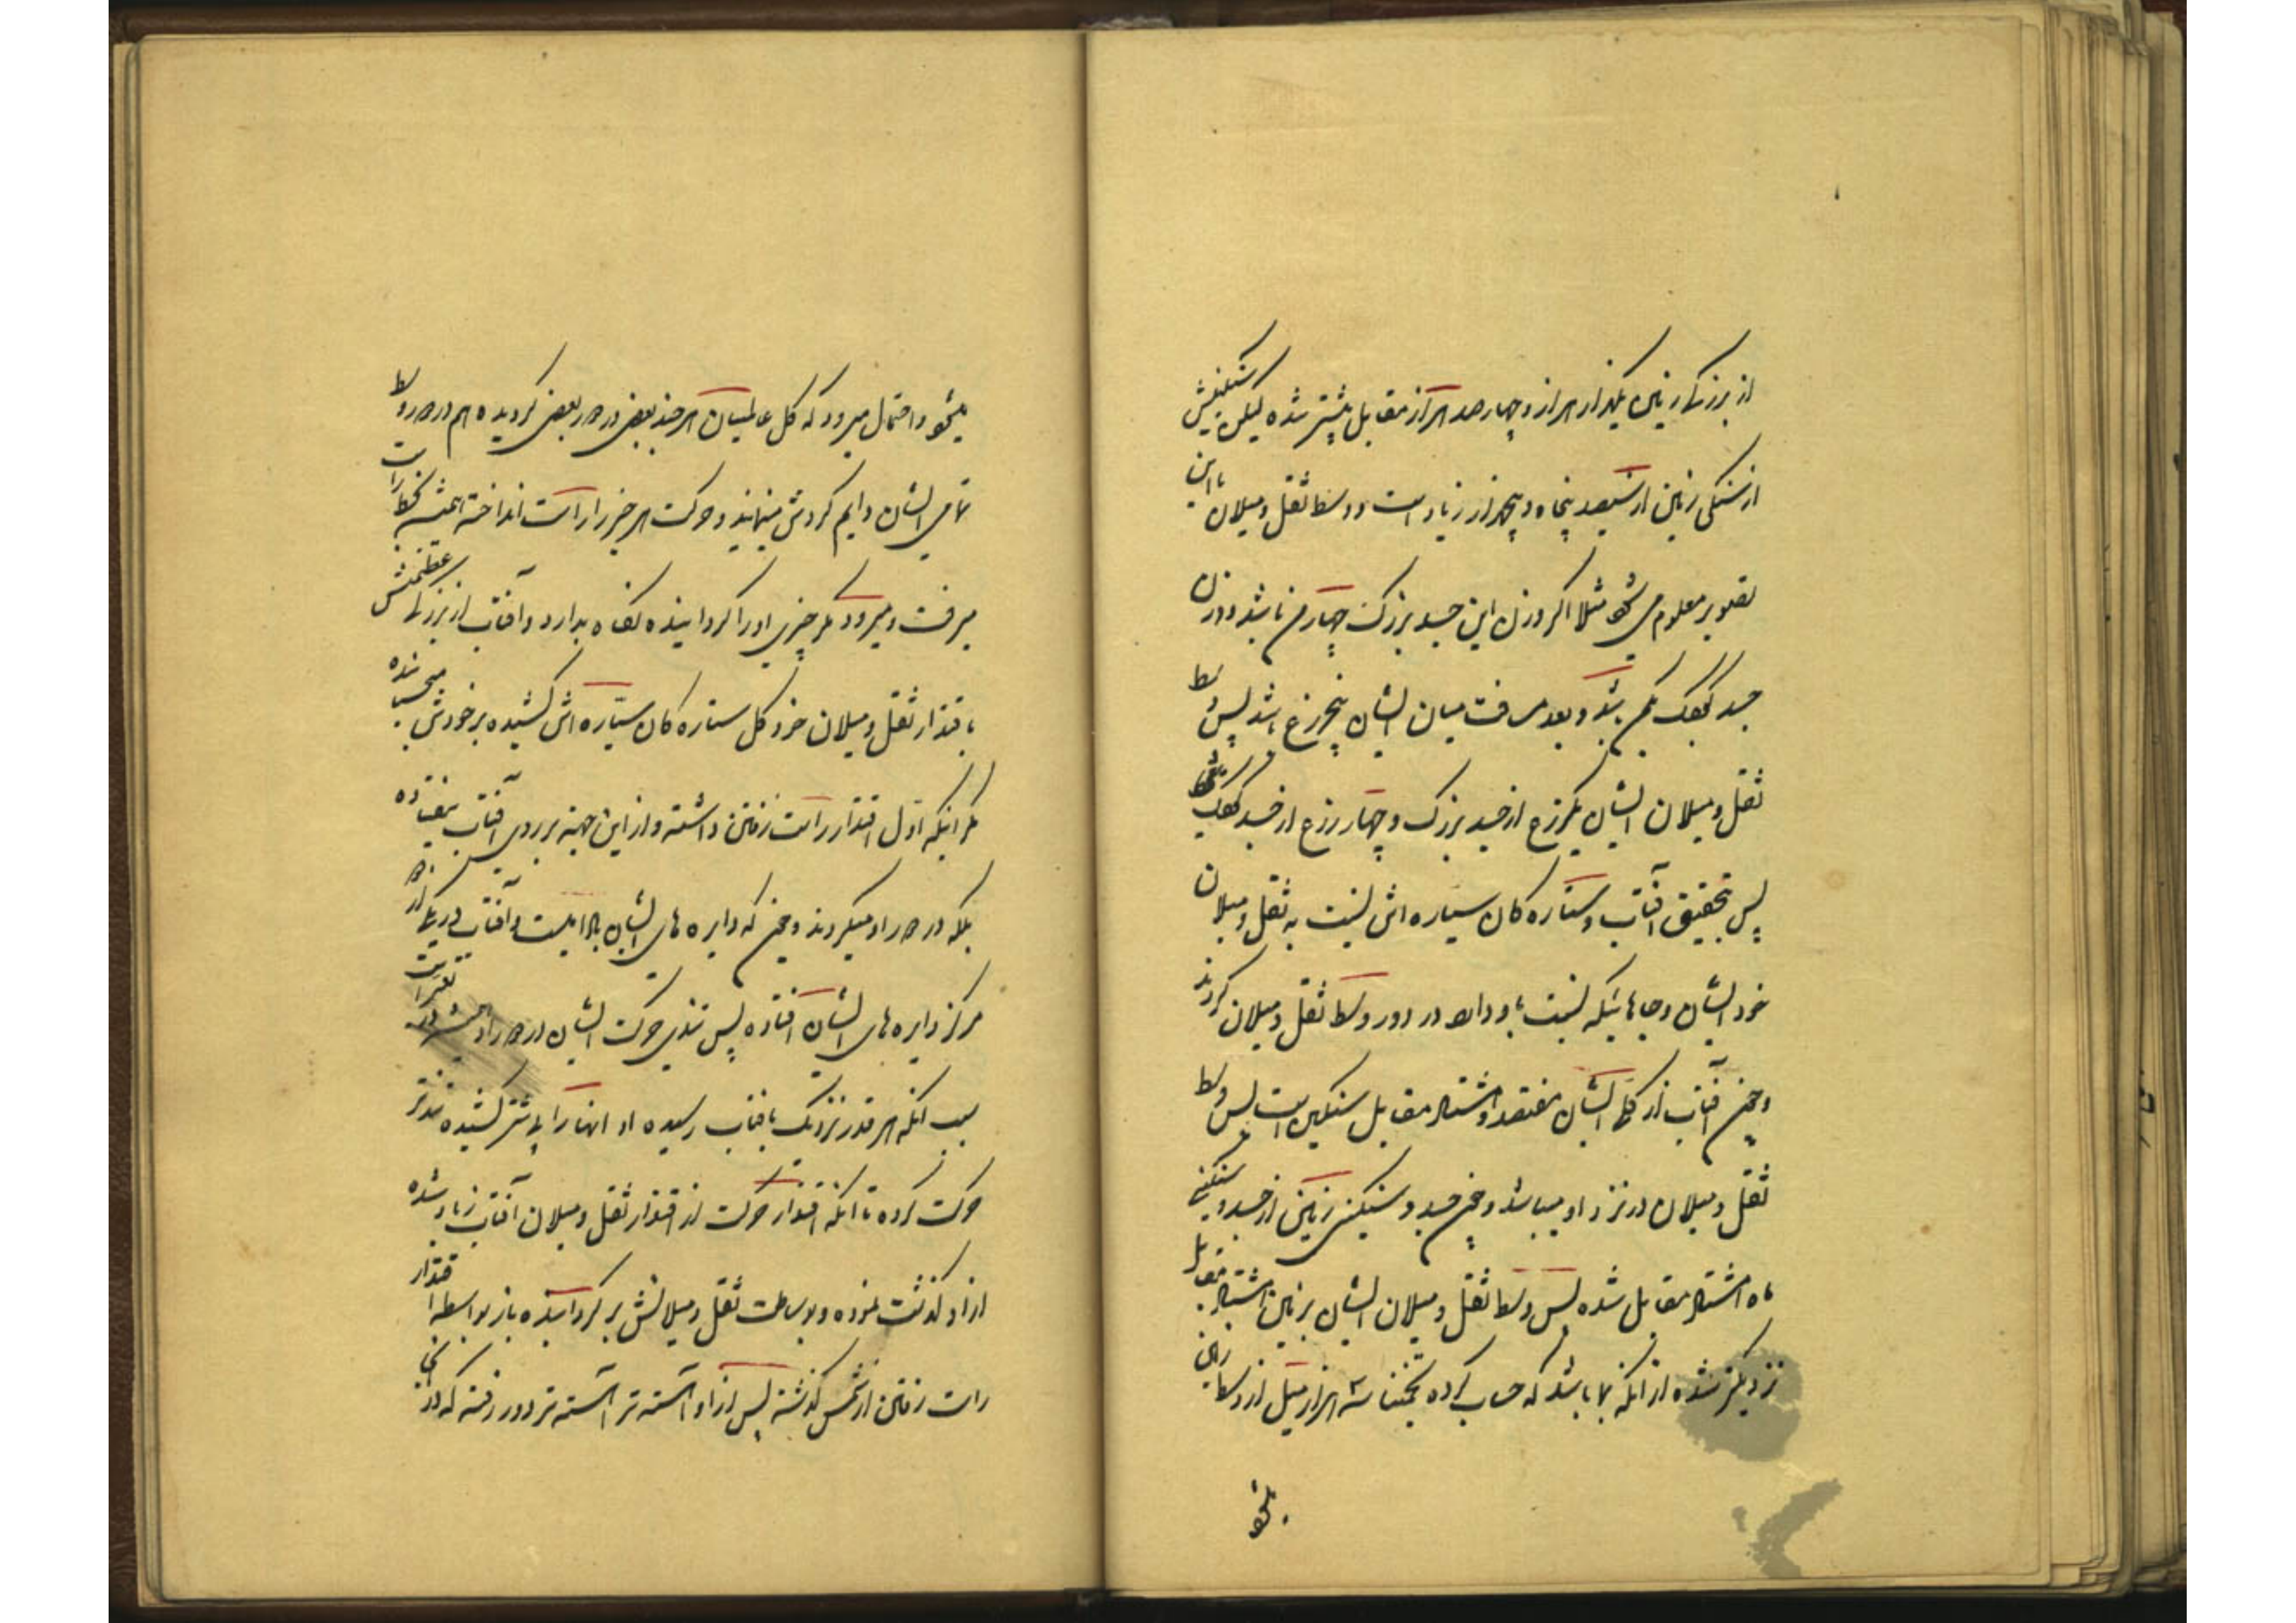 از بزرگی زمین یکهزار هزار و چهار صد هزار مقابل بیشتر شده لیکن سنگینیش
از سنگی زمین از سیصد پنجاه و پنجهزار زیاد است و وسط ثقل و میلان با این
تصویر معلوم می شود مثلا اگر وزن این جسد بزرگ چهار من باشد و وزن
جسد کوچک یکمن باشد و بعد مسافت میان ایشان پنج زرع باشد پس وسط
ثقل و میلان ایشان یکزرع از جسد بزرگ و چهار زرع از جسد کوچک
پس بتحقیق آفتاب و ستاره کان سیاره اش نسبت به ثقل و میلان
خود ایشان و جاهائیکه نسبت باو دارند در دور وسط ثقل و میلان کردند
و چون آفتاب از کل ایشان هفتصد و هشتاد مقابل سنگین است پس وسط
ثقل و میلان در نزد او میباشد و چون جسد و سنگینی زمین از جسد و سنگینی
ماه هشتاد مقابل شده پس وسط ثقل و میلان ایشان بزمین هشتاد مقابل
نزدیکتر شده از آنکه بماه باشد که حساب کرده تخمینا سه هزار میل از وسط زمین
میشود
میشود و احتمال میرود که کل عالمیان هر چند بعضی در دور بعضی کردیده هم در دور وسط
تمامی ایشان دایم کردش مینمایند و حرکت هر چیز را راست انداخته همیشه بخط راست
میرفت و میرود مگر چیزی او را کرداینده نگاه بدارد و آفتاب از بزرگی عظمتش
باقتدار ثقل و میلان خود کل ستاره کان سیّاره اش کشیده بر خودش میچسباننده
مگر اینکه اوّل اقتدار راست رفتن داشته و از این جهت بر روی آفتاب نیفتاده
بلکه در دور او میکردند و چون که دایره های ایشان
مرکز دایره های ایشان افتاده پس تندی حرکت ایشان در دور او همیشه در تغیر است
سبب آنکه هر قدر نزدیک بافتاب رسیده او انها را بیشتر کشیده تندتر
حرکت کرده تا آنکه اقتدار حرکت از اقتدار ثقل و میلان آفتاب زیاد شده
از او گذشت نموده و بوساطت ثقل و میلانش بر کردانیده باز بواسطه اقتدار
راست رفتن از شمس گذشته پس از او آهسته تر آهسته تر دور رفته که در آنجا